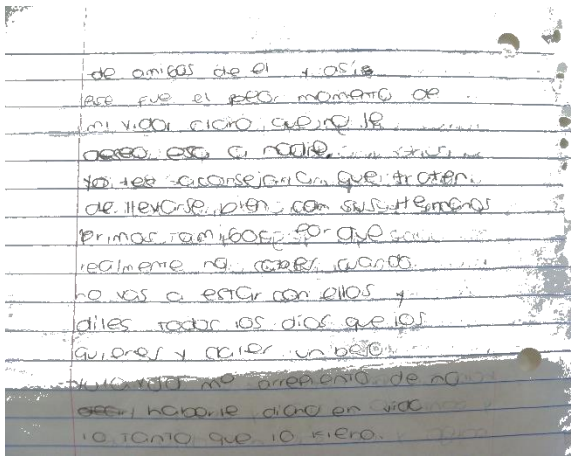 de amigas de el y asi
ese fue el peor momento de
mi vida, claro que no le
deseo eso a nadie.
Yo les aconsejaria que traten
de llevarse bien con sus Hermanos
Primos, amigos por que
realmente no sabes cuando
no vas a estar con ellos y
diles todos los dias que los
quieres y dales un beso
me arrepento de no
haberle dicho en vida
lo tanto que lo kiero.